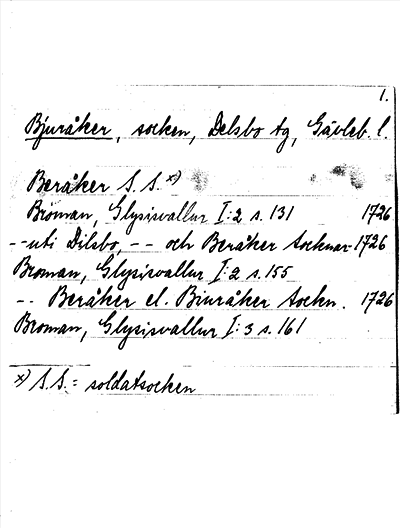 1.
Bjuråker, socken, Delsbo tg, Gävleb. l.
Beråker S. S. x)
Broman, Glysisvallur I:2 s. 131 1726
--uti Dilsbo, -- och Beråker Sochnar 1726
Broman, Glysisvallur I:2 s. 155
-- Beråker el. Biuråker Sochn. 1726
Broman, Glysisvallur I:3 s. 161
x) S. S. = soldatsocken